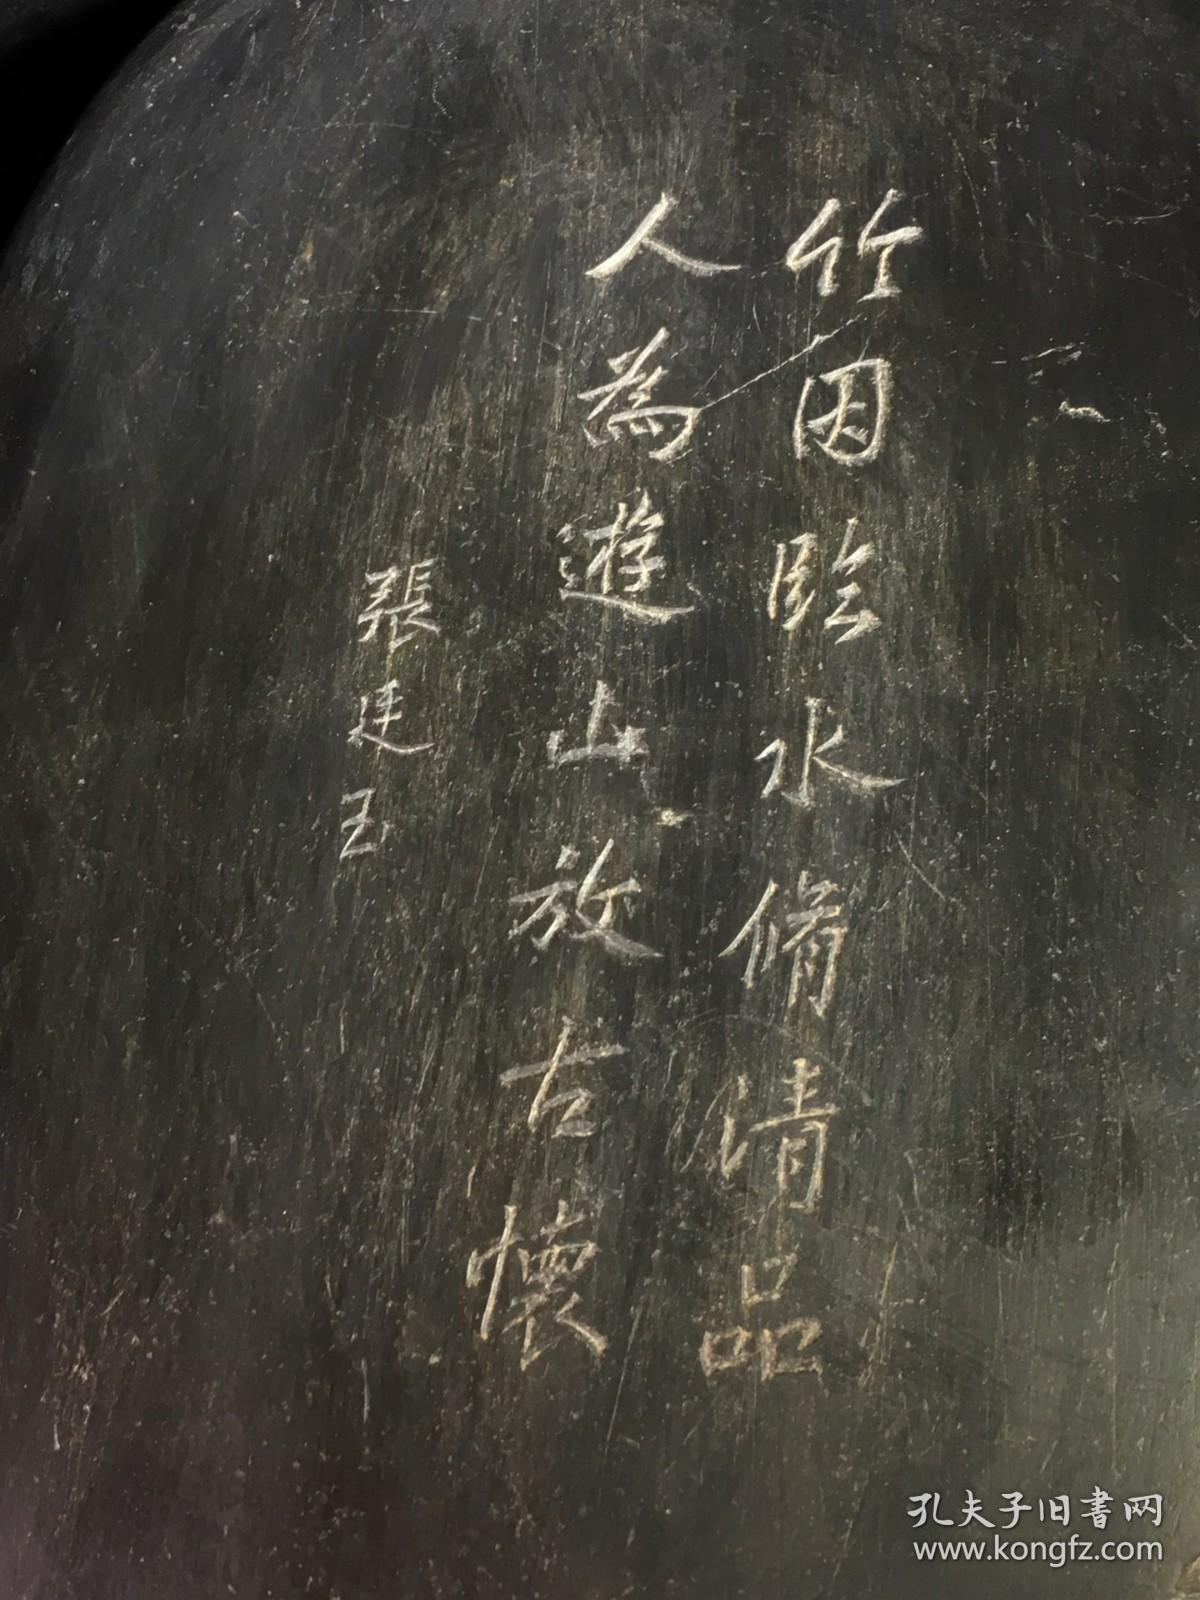 竹因臨水脩清品
人為遊山放古懷
張廷玉
孔夫子旧書网
www.kongfz.com